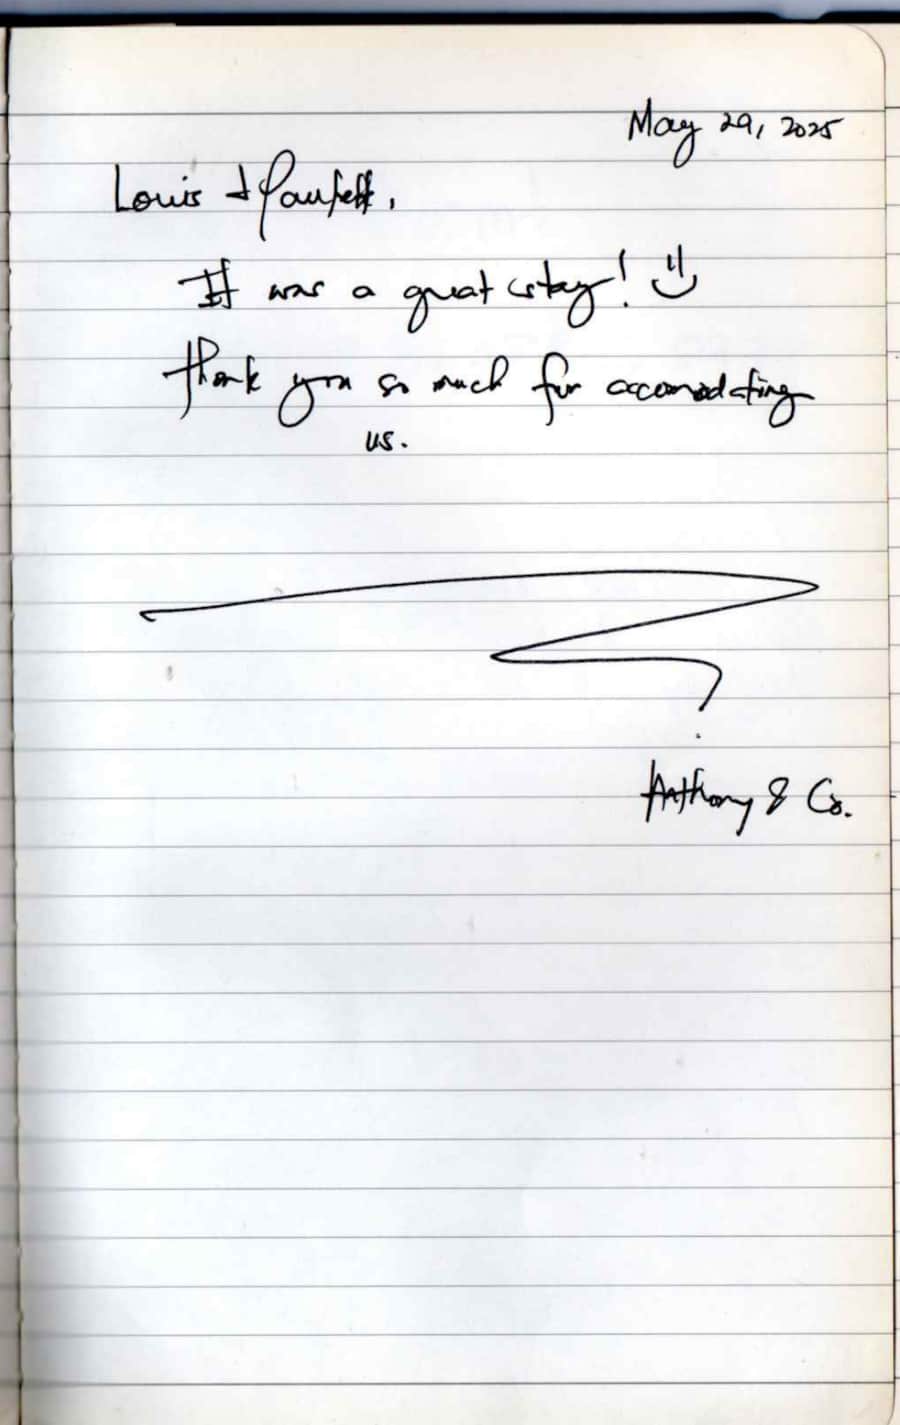 May 29, 2025
Louis &
It was a great stay! :)
Thank you so much for accomodating
us.
Anthony & Co.